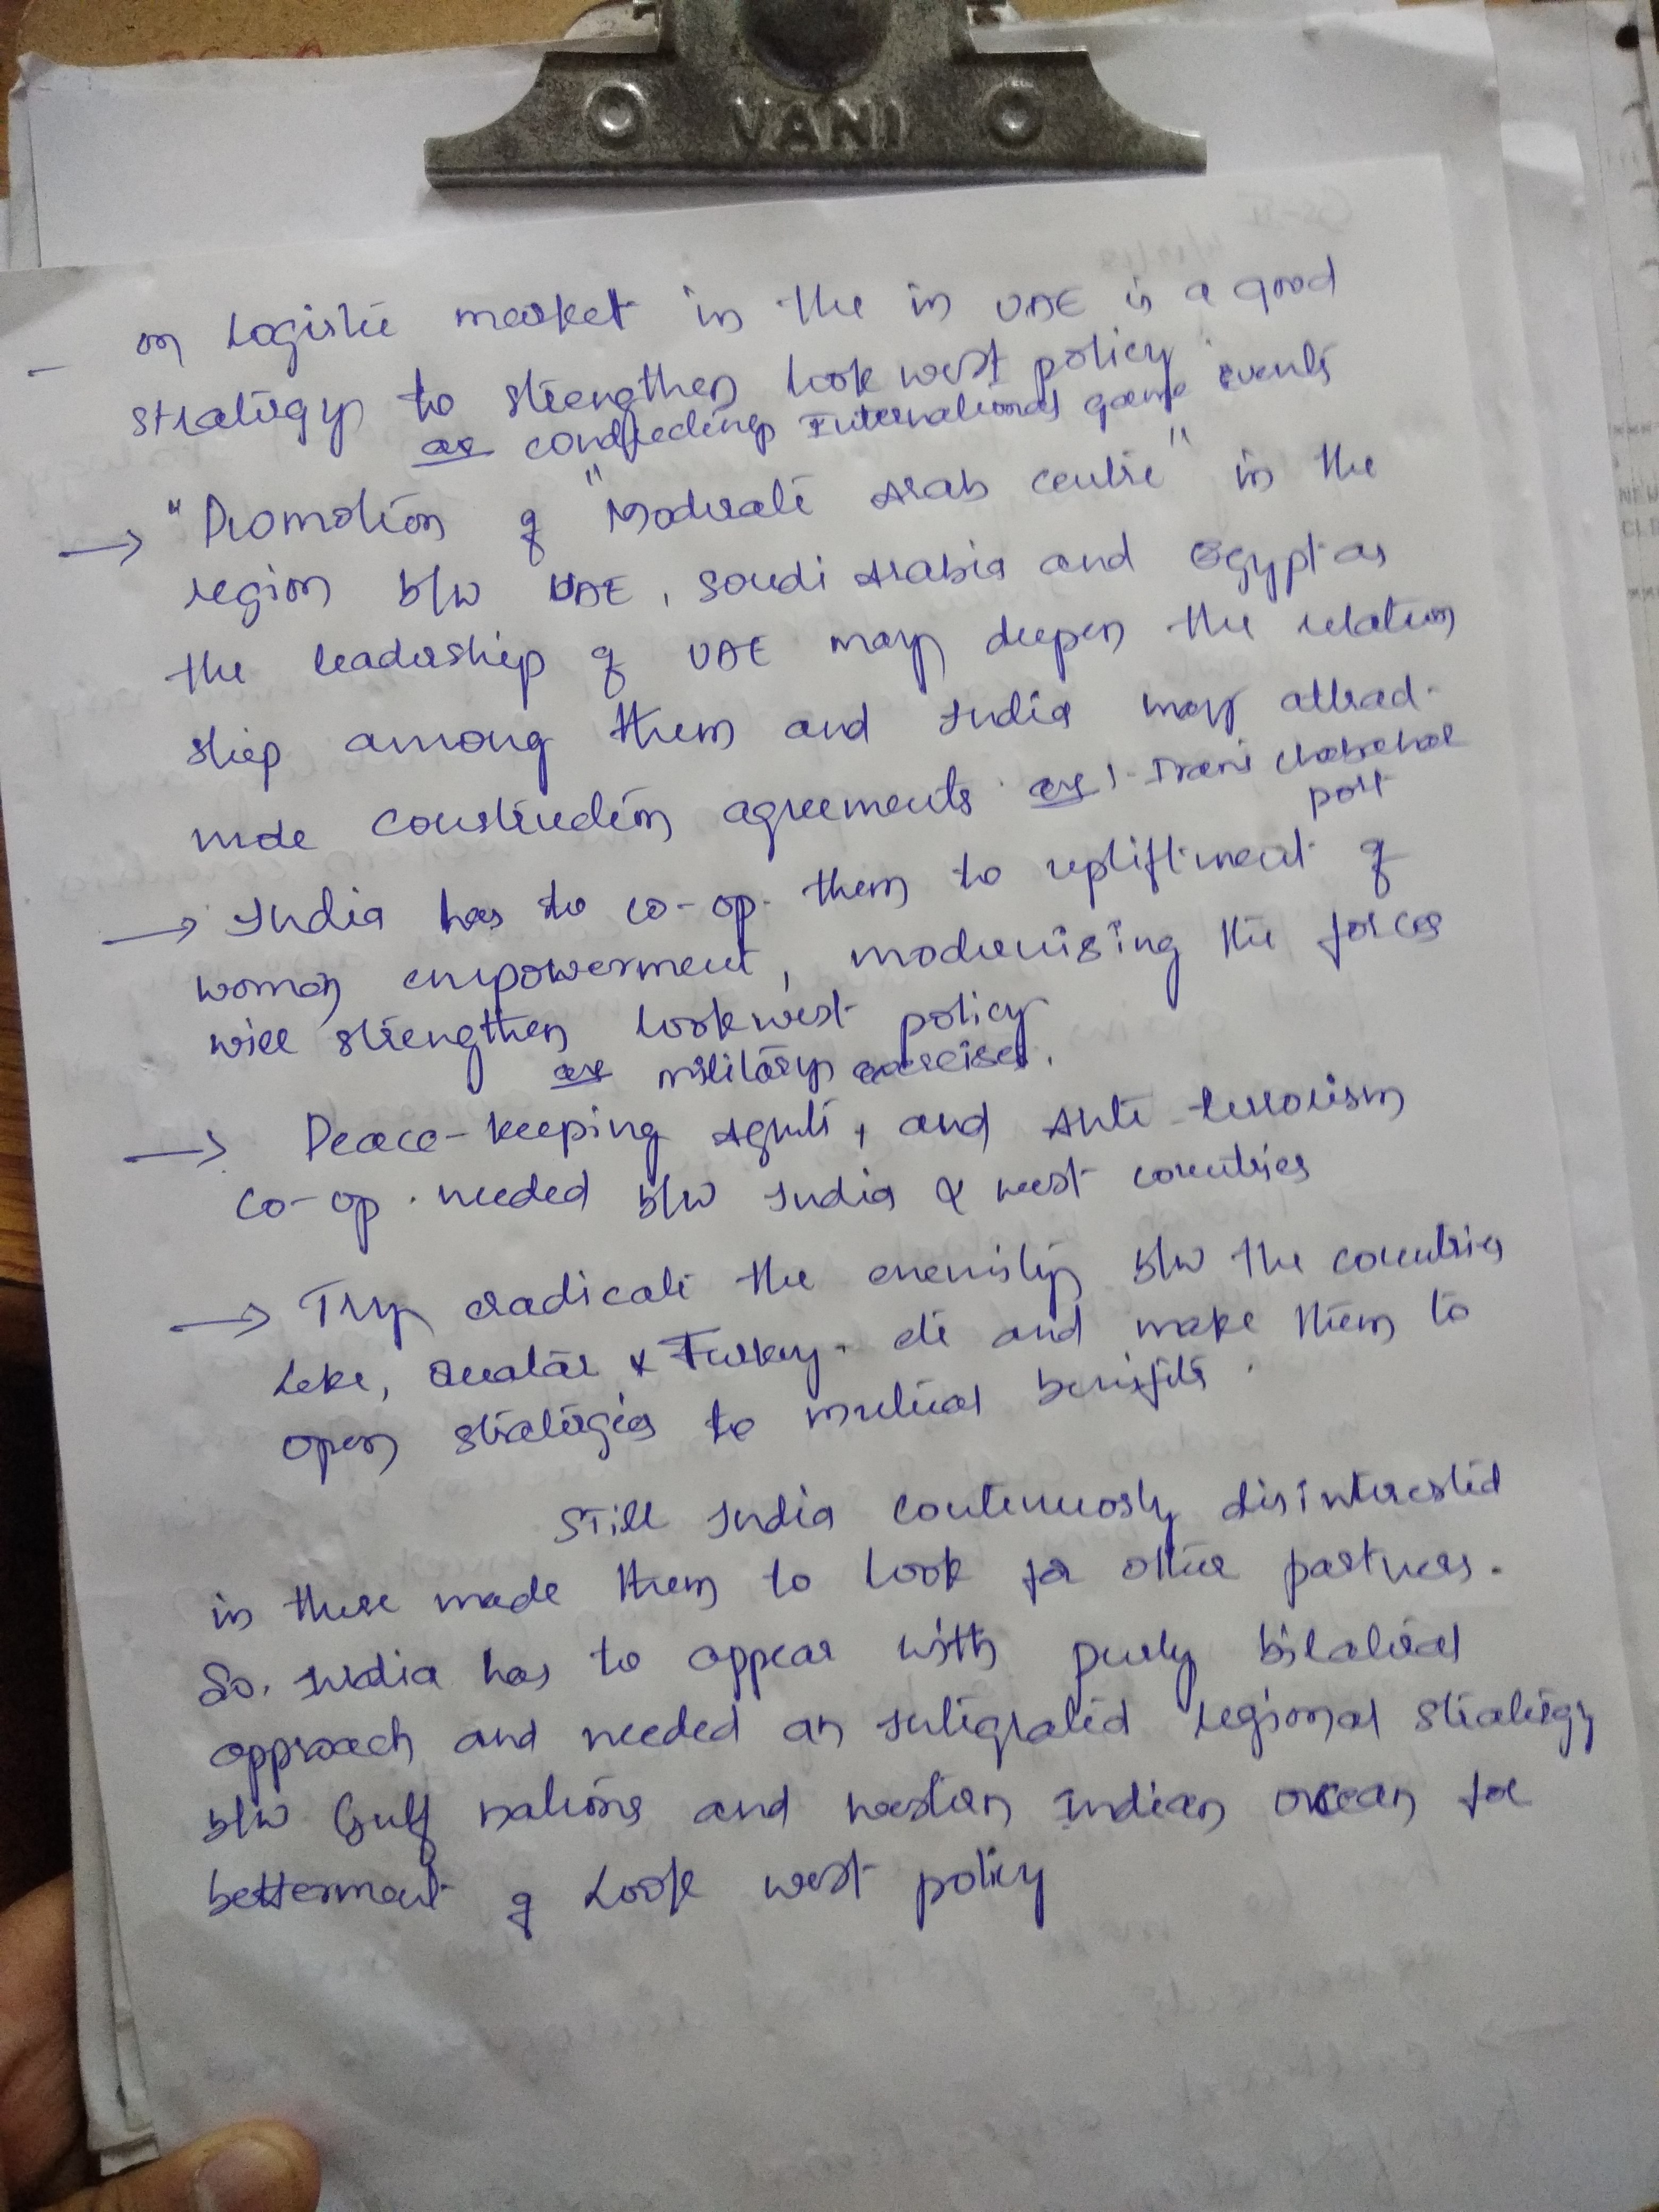 VANI
on Logistic market in the in UAE is a good
strategy to strengthen look west policy
ex conducting International game events
→ "Promotion of "Moderate Arab centre" in the
region b/w UAE, Saudi Arabia and Egypt as
the leadership of UAE may deepen the relation
ship among them and India may attract
more construction agreements ex:- Iran's chabahar
port
→ India has to co-op. them to upliftment of
women empowerment, modernising the forces
will strengthen look west policy
ex military exercises.
→ Peace-keeping and Anti-terrorism
co-op. needed b/w India & west countries
→ Try eradicate the b/w the countries
Like, Quatar & Turkey. etc and make them to
open strategies to mutual benifits.
Still India continuosly disinterested
in these made them to look for other partners.
So, India has to appear with purly bilateral
approach and needed an Integrated regional strategy
b/w Gulf nations and western Indian ocean for
betterment of Look west policy